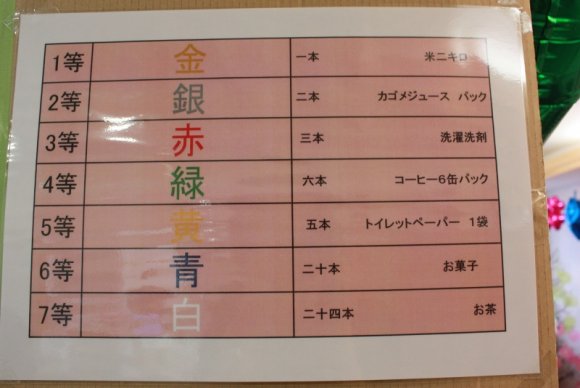 1等 金 一本 米二キロ
2等 銀 二本 カゴメジュース パック
3等 赤 三本 洗濯洗剤
4等 緑 六本 コーヒー6缶パック
5等 黄 五本 トイレットペーパー 1袋
6等 青 二十本 お菓子
7等 白 二十四本 お茶